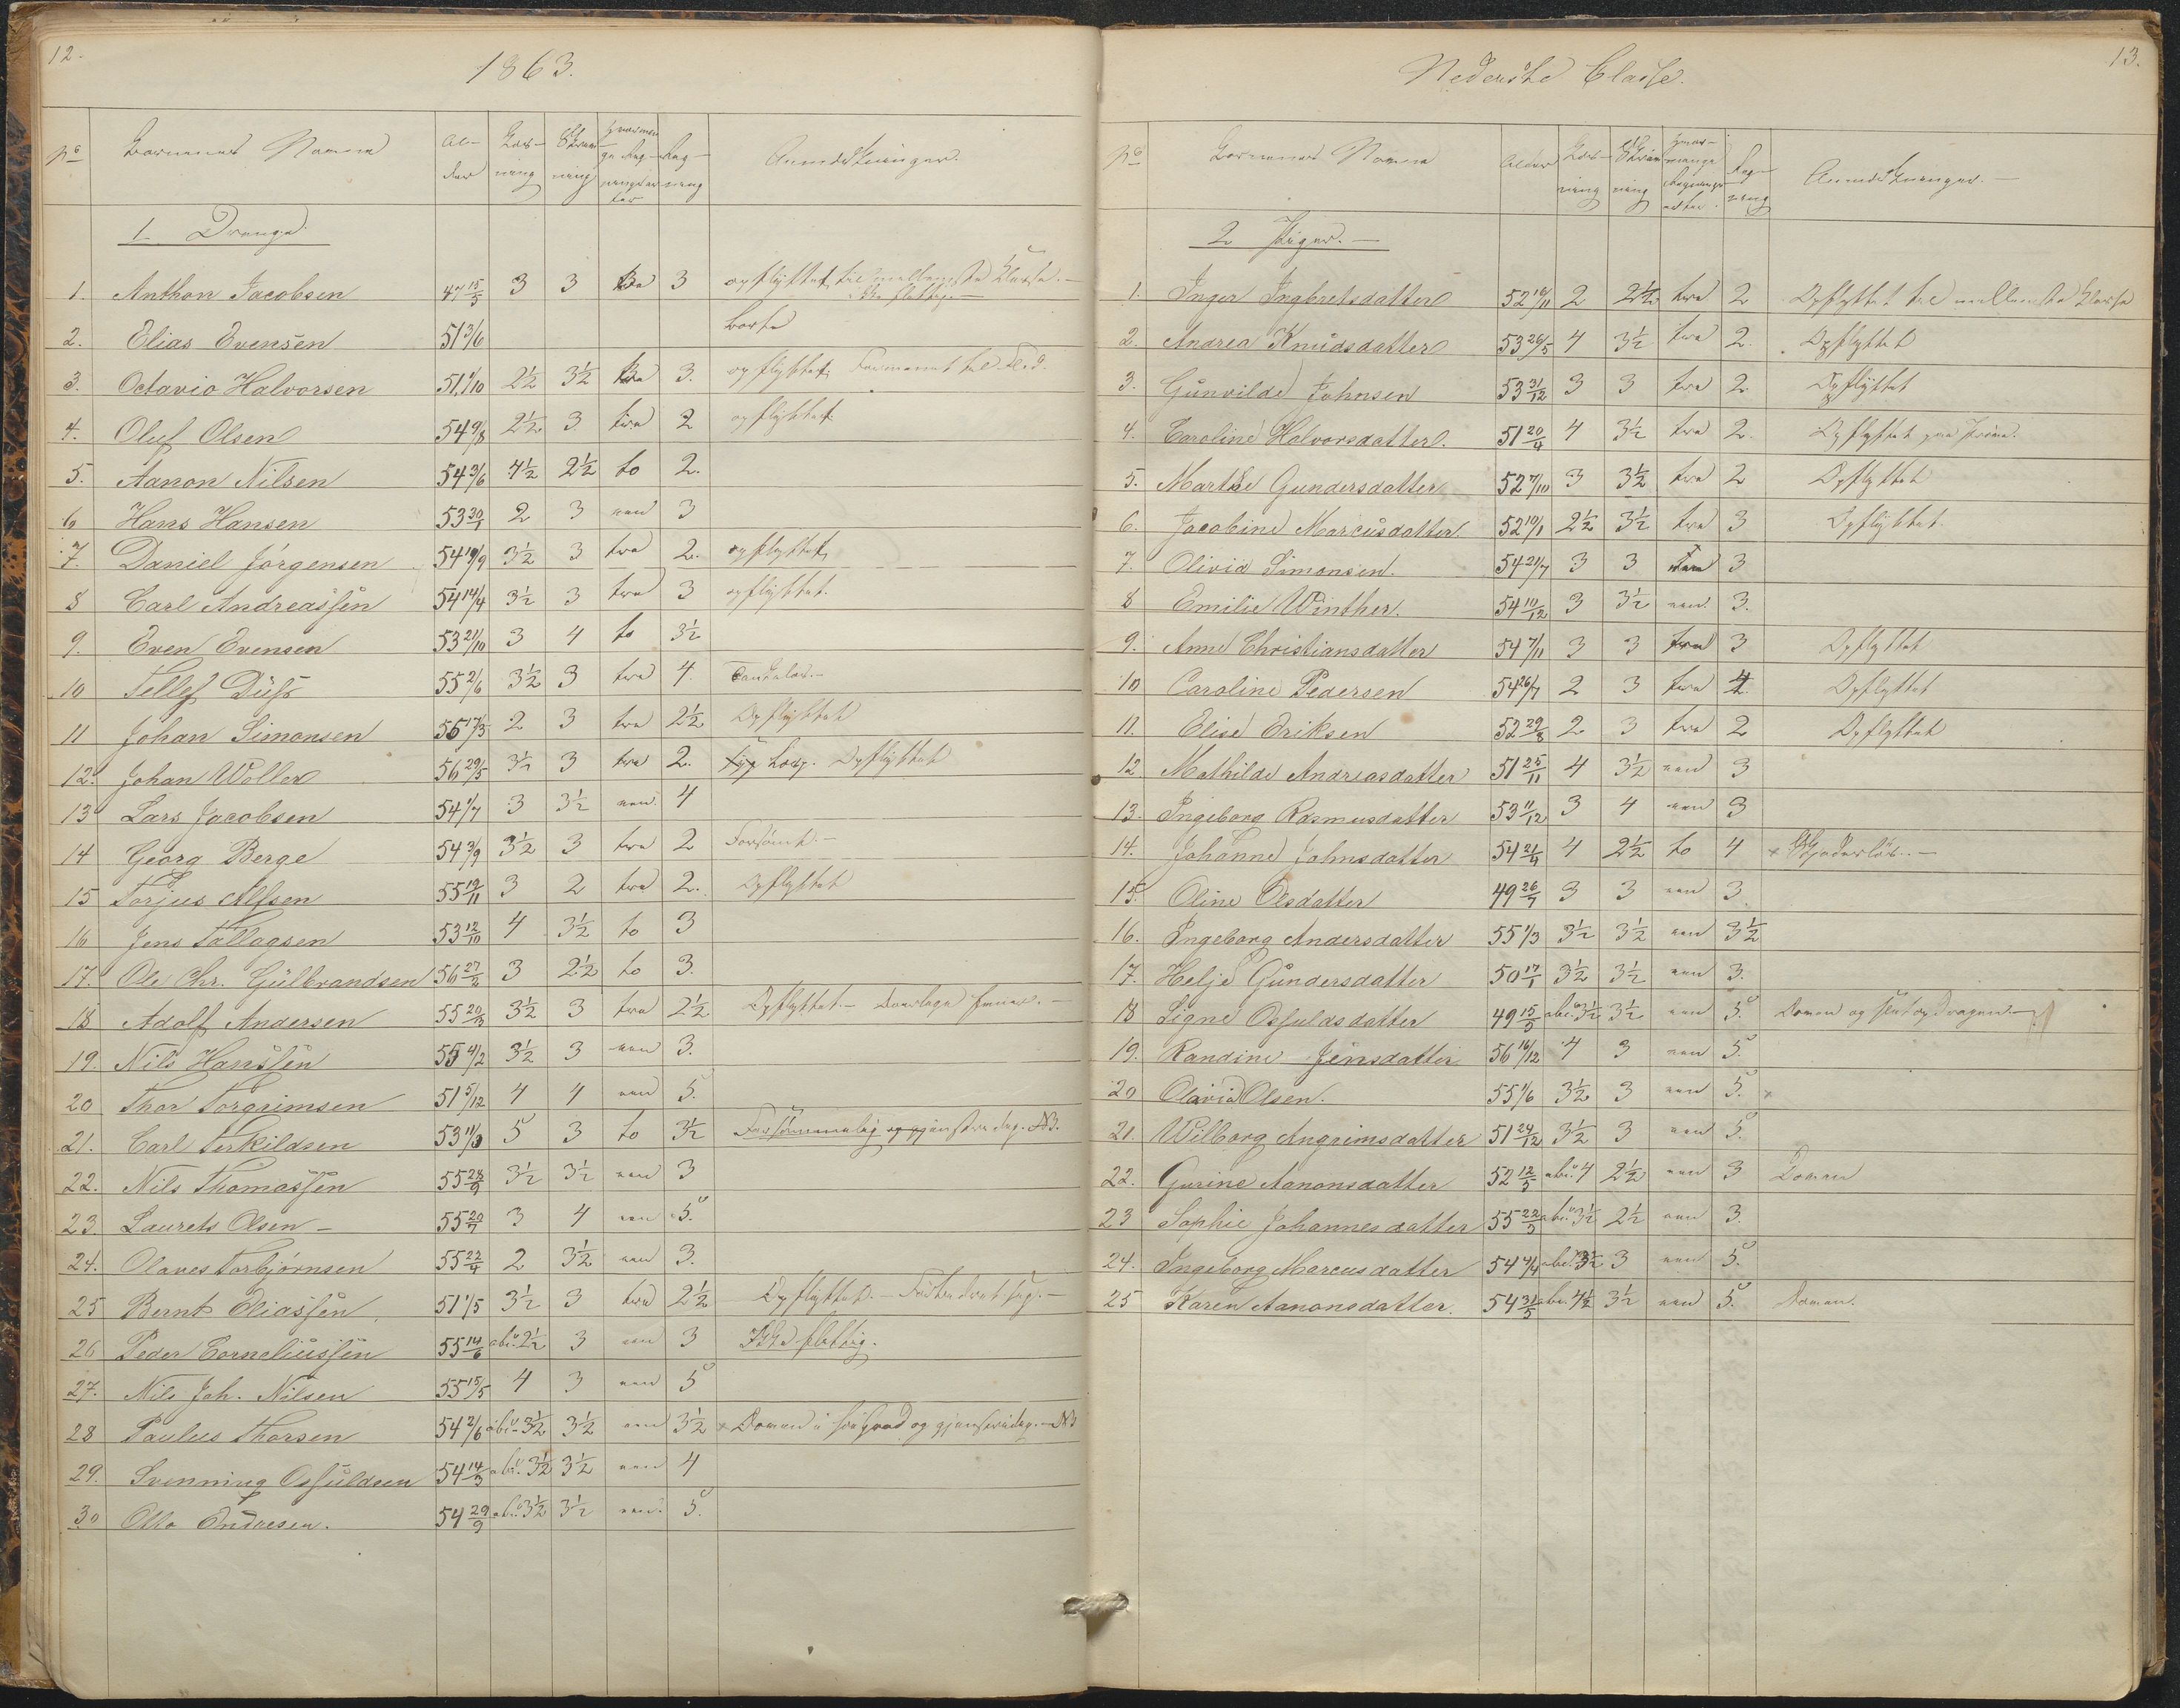 12.
1863.
No Børnenes Navne Al-der Læs-ning Skriv-ning Hvormange Regningsarter Reg-ning Anmærkninger.
1. Drenge
1. Anthon Jacobsen 47 15/5 3 3 tre 3 opflyttet til mellemste Klasse. –
2. Elias Evensen 51 3/6 borte
3. Octavio Halvorsen 51 1/10 2½ 3½ tre 3. opflyttet
4. Oluf Olsen 54 9/8 2½ 3 tre 2 opflyttet
5. Aanon Nilsen 54 3/6 4½ 2½ to 2.
6 Hans Hansen 53 30/1 2 3 een 3
7. Daniel Jörgensen 54 19/9 3½ 3 tre 2. opflyttet
8 Carl Andreassen 54 14/4 3½ 3 tre 3 opflyttet.
9. Even Evensen 53 21/10 3 4 to 3½
10 Tellef Duus 55 2/6 3½ 3 tre 4.
11 Johan Simonsen 55 17/3 2 3 tre 2½ Opflyttet
12. Johan Woller 56 29/5 3½ 3 tre 2. Opflyttet
13 Lars Jacobsen 54 1/7 3 3½ een. 4
14 Georg Berge 54 3/9 3½ 3 tre 2 Forsømt. –
15 Torjus Alfsen 55 19/11 3 2 tre 2. Opflyttet
16 Jens Tallagsen 53 12/10 4 3½ to 3
17. Ole Chr. Gülbrandsen 56 27/2 3 2½ to 3.
18 Adolf Andersen 55 20/3 3½ 3 tre 2½ Opflyttet. –
19. Nils Hanssen 55 4/2 3½ 3 een 3.
20 Thor Torgrimsen 51 5/12 4 4 een 5.
21. Carl Terkildsen 53 11/3 5 3 to 3½ Forsømmelig og gjenstridig. NB.
22. Nils Thomassen 55 28/9 3½ 3½ een 3
23. Laurets Olsen – 55 20/7 3 4 een 5.
24. Olaves Torbjørnsen 55 22/4 2 3½ een 3.
25 Bernt Eliassen 51 1/5 3½ 3 tre 2½ Opflyttet. –
26 Peder Corneliussen 55 14/6 abc. 2½ 3 een 3 Ikke flittig.
27. Nils Joh. Nilsen 55 15/5 4 3 een 5
28 Paulus Thorsen 54 2/6 abc. 3½ 3½ een 3½ × Doven og gjenstridig. – NB
29. Svenning Osfuldsen 54 14/3 abc. 3½ 3½ een 4
30 Otto Andresen. 54 29/9 abc. 3½ 3½ een. 5.
13.
Nederste Classe.
No Børnenes Navne Alder Læs-ning Skriv-ning Hvormange Regningsarter Reg-ning Anmærkninger. –
2 Piger. –
1. Inger Ingbretsdatter 52 16/11 2 2½ tre 2 Opflyttet til mellemste Klasse
2. Andrea Knudsdatter 53 26/5 4 3½ tre 2. Opflyttet
3. Gunvilde Johnsen 53 31/12 3 3 tre 2. Opflyttet
4. Caroline Halvorsdatter. 51 20/4 4 3½ tre 2. Opflyttet paa Prøve.
5. Marthe Gundersdatter 52 7/10 3 3½ tre 2 Opflyttet
6. Jacobine Marcusdatter. 52 10/1 2½ 3½ tre 3 Opflyttet.
7. Olivia Simonsen. 54 21/7 3 3 3
8 Emilie Winther. 54 10/12 3 3½ een. 3.
9. Anne Christiansdatter 54 7/11 3 3 tre 3 Opflyttet
10 Caroline Pedersen 54 26/7 2 3 tre 4. Opflyttet
11. Elise Eriksen 52 29/8 2 3 tre 2 Opflyttet
12. Mathilde Andreasdatter 51 25/11 4 3½ een 3
13. Ingeborg Rasmusdatter 53 11/12 3 4 een 3
14. Johanne Johnsdatter 54 21/4 4 2½ to 4 ×
15. Oline Olsdatter 49 26/7 3 3 een 3.
16. Ingeborg Andersdatter 55 1/3 3½ 3½ een 3½
17. Helje Gundersdatter 50 17/1 3½ 3½ een 3.
18 Signe Osfuldsdatter 49 15/5 abc. 3½ 3½ een 5. Doven og
19. Randine Jensdatter 56 16/12 4 3 een 5.
20 Olavia Olsen. 55 1/6 3½ 3 een 5. ×
21. Wilborg Angrimsdatter 51 24/12 3½ 3 een 5.
22. Gurine Aanonsdatter 52 12/5 abc. 4 2½ een 3 Doven
23 Sophie Johannesdatter 55 22/3 abc. 3½ 2½ een 3.
24. Ingeborg Marcusdatter 54 4/4 abc. 3½ 3 een 5.
25 Karen Aanonsdatter. 54 31/5 abc. 4½ 3½ een 5. Doven.